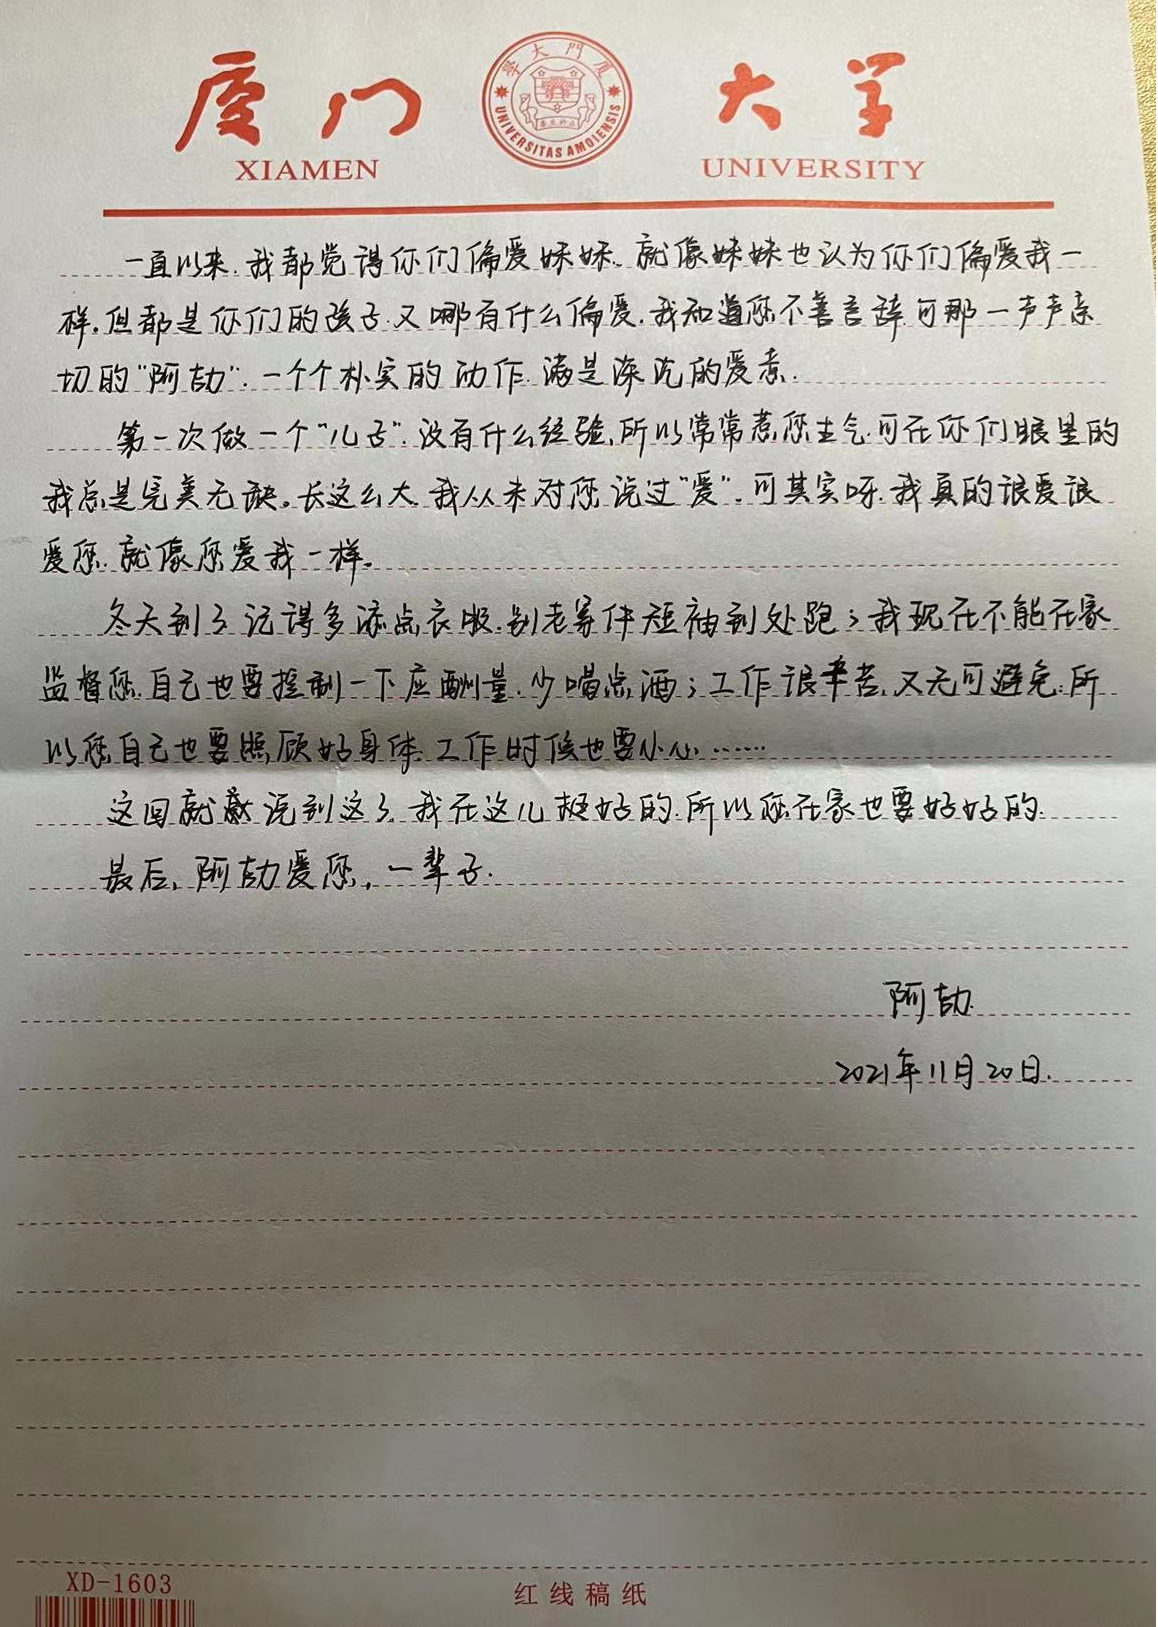 厦门大学
學大門厦
UNIVERSITAS AMOIENSIS
XIAMEN UNIVERSITY
一直以来,我都觉得你们偏爱妹妹,就像妹妹也认为你们偏爱我一
样。但都是你们的孩子,又哪有什么偏爱,我知道您不善言辞,可那一声声亲
切的“阿劼”,一个个朴实的动作,满是深沉的爱意.
第一次做一个“儿子”,没有什么经验,所以常常惹您生气,可在你们眼里的
我总是完美无缺。长这么大,我从未对您说过“爱”,可其实呀,我真的很爱很
爱您,就像您爱我一样。
冬天到了,记得多添点衣服,别老穿件短袖到处跑;我现在不能在家
监督您,自己也要控制一下应酬量,少喝点酒;工作很辛苦,又无可避免,所
以您自己也要照顾好身体,工作时候也要小心……
这回就说到这了,我在这儿挺好的,所以您在家也要好好的.
最后,阿劼爱您,一辈子.
阿劼
2021年11月20日.
XD-1603
红线稿纸